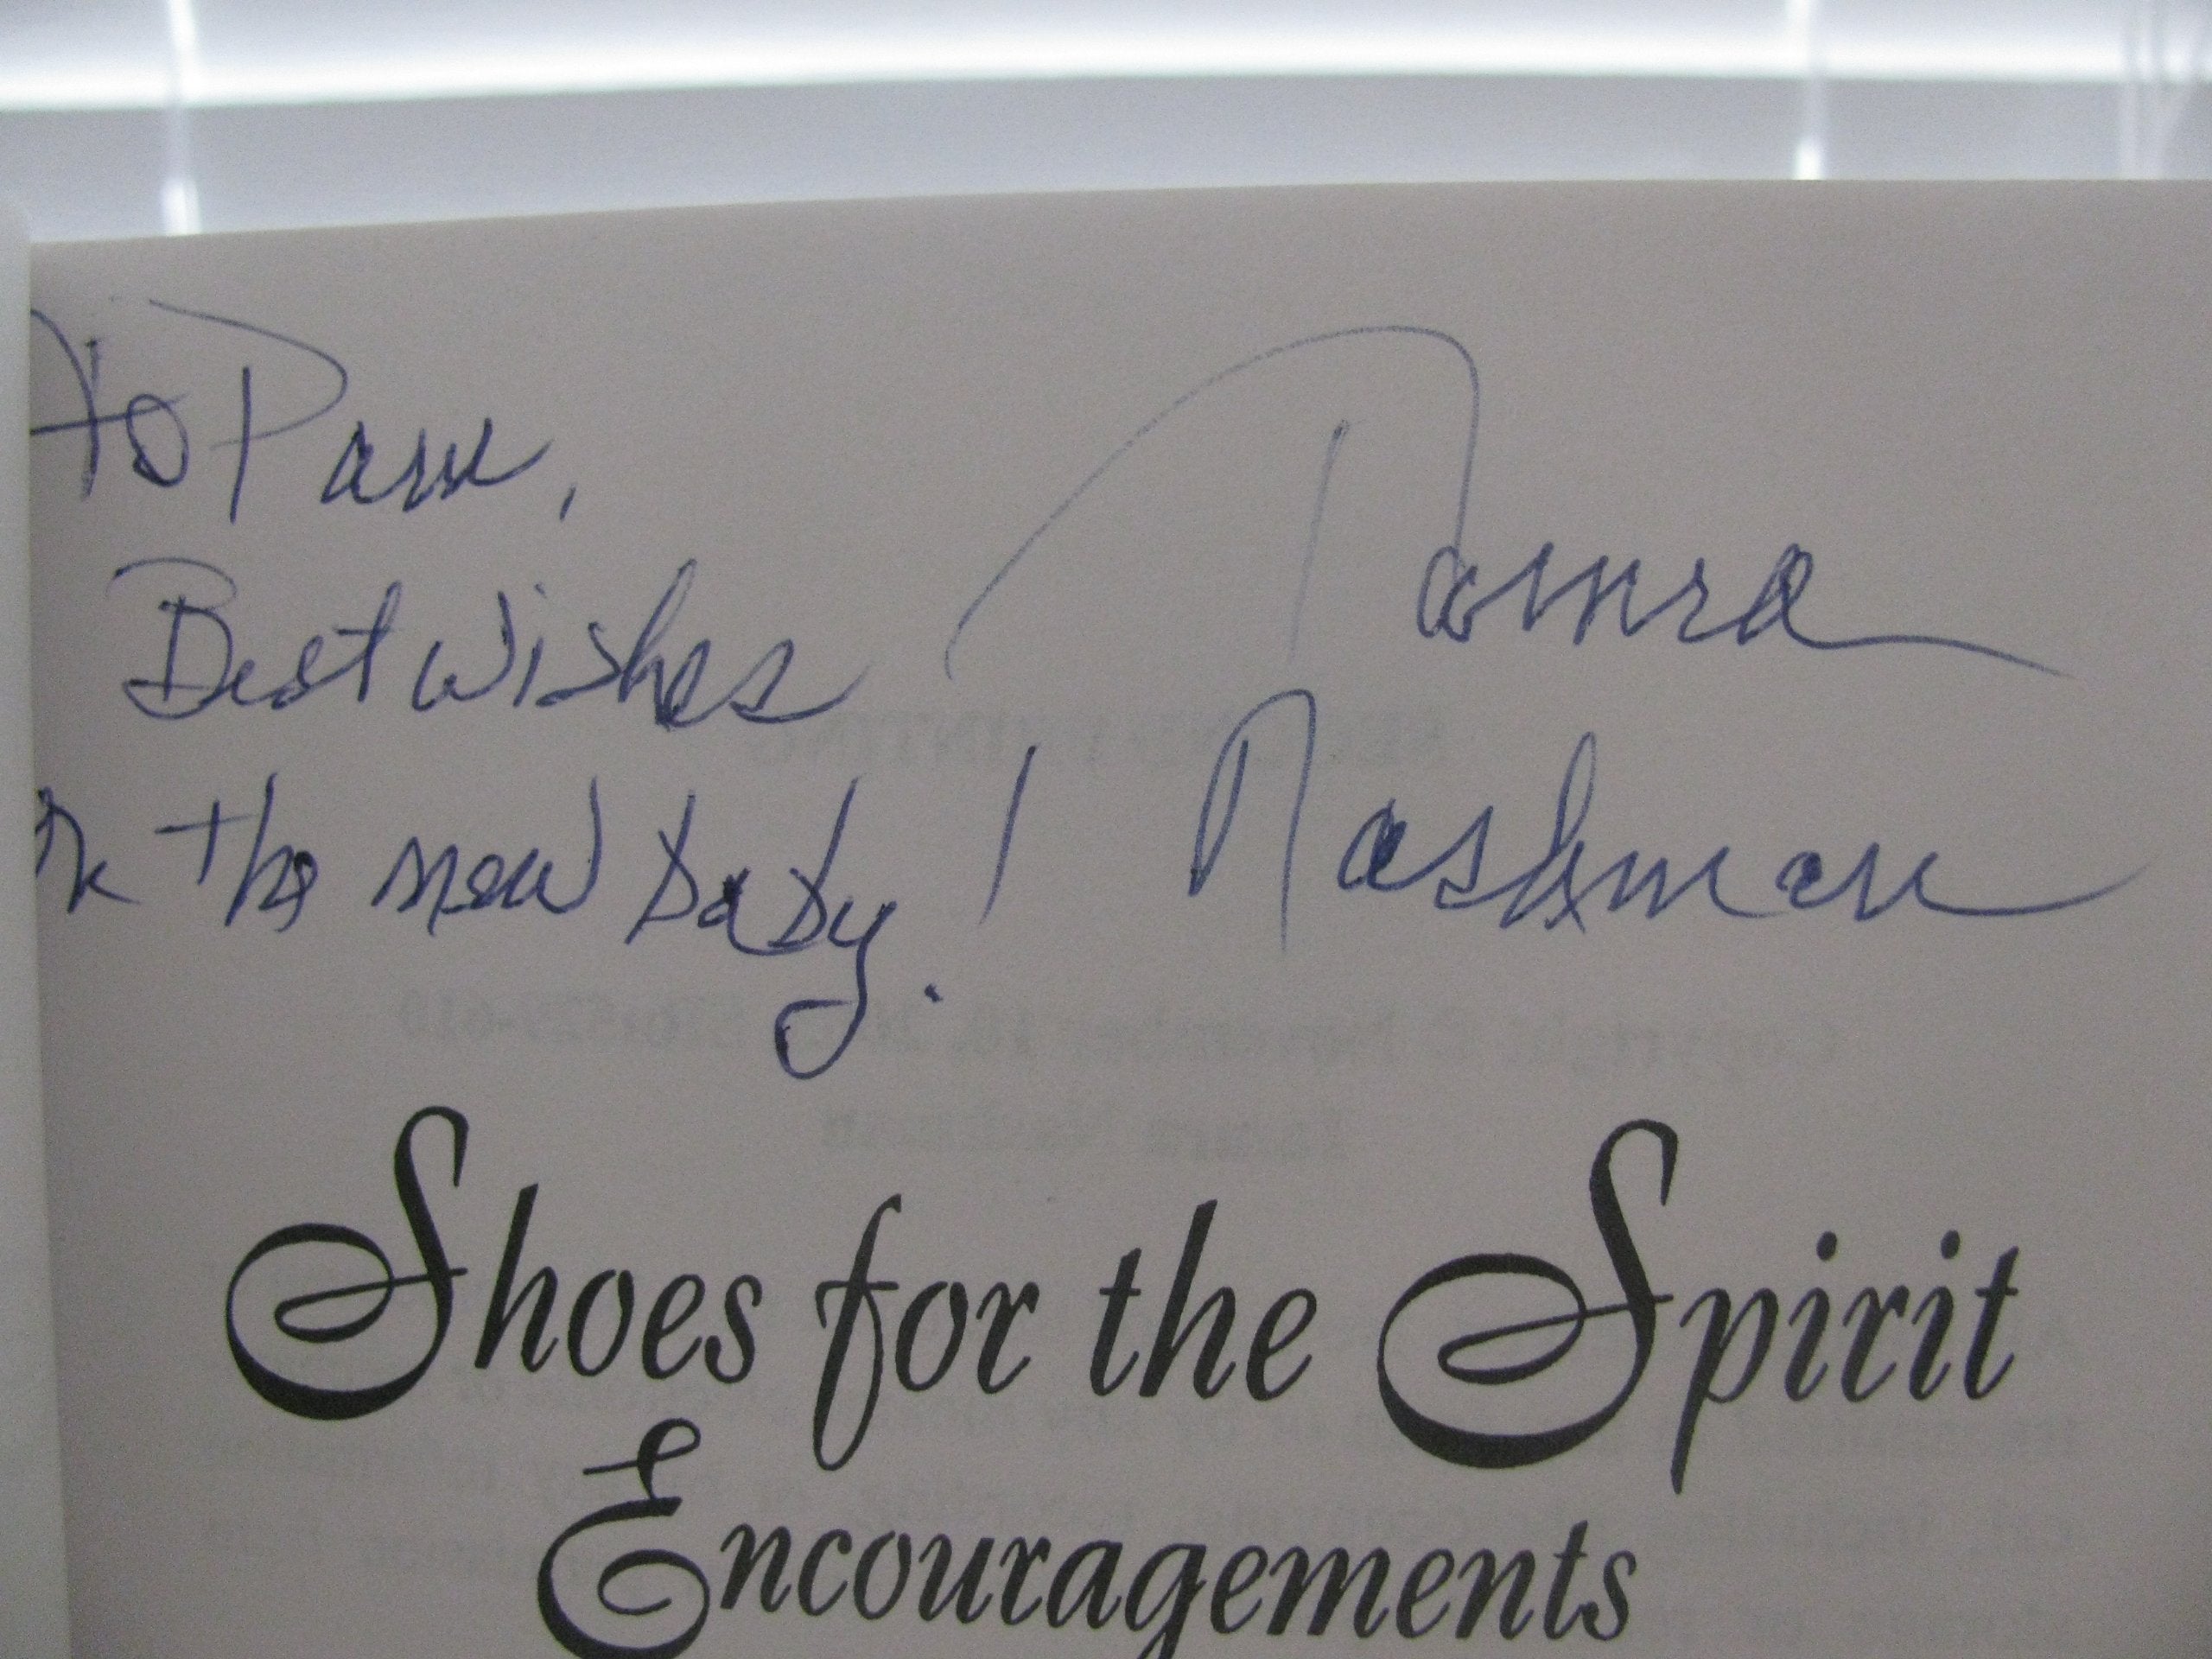 to Pam,
Best wishes
on the new baby!
Tamra
Nashman
Shoes for the Spirit
Encouragements